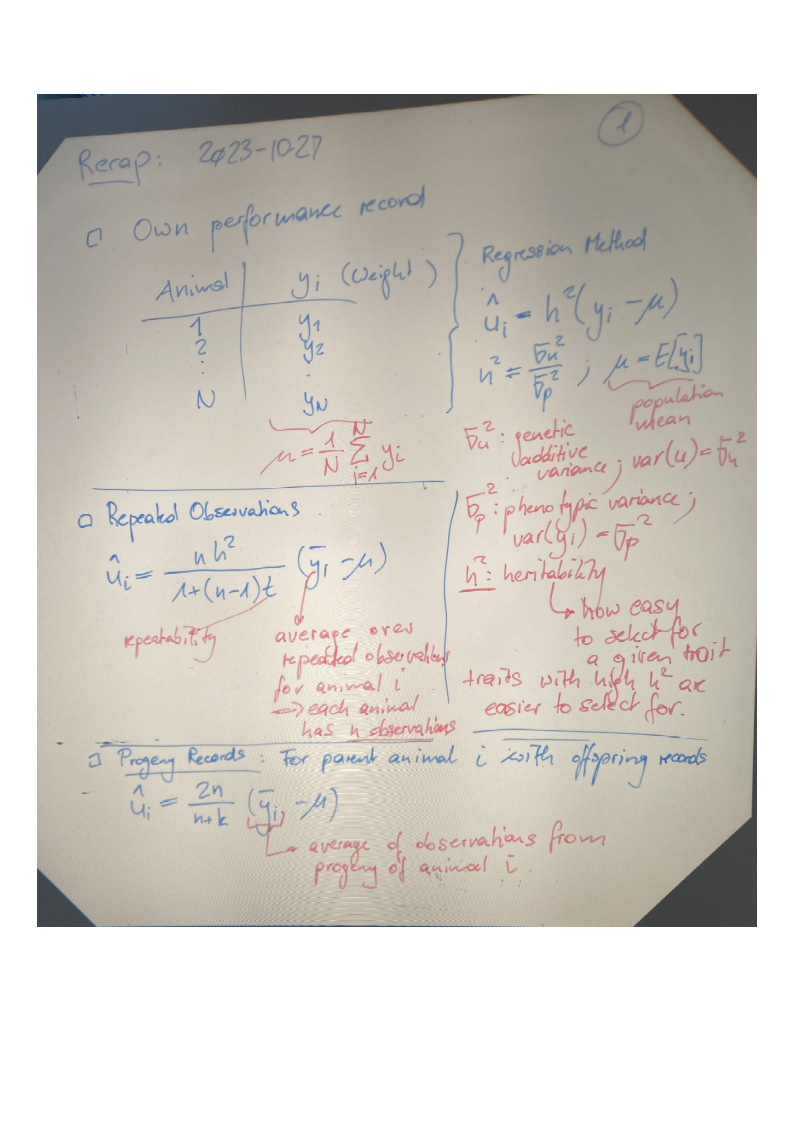 1
Recap: 2023-10-27
□ Own performance record
Animal | yi (Weight)
1 y1
2 y2
⋮ ⋮
N yN
μ = 1/N Σ_{i=1}^{N} yi
Regression Method
ûi = h²(yi − μ)
h² = σu²/σp² ; μ = E[yi]
population
mean
σu²: genetic
additive
variance ; var(u) = σu²
σp²: phenotypic variance;
var(yi) = σp²
h²: heritability
↳ how easy
to select for
a given trait
traits with high h² are
easier to select for.
□ Repeated Observations
ûi = n h² / (1+(n−1)t) (ȳi − μ)
repeatability
average over
repeated observations
for animal i
→ each animal
has n observations
□ Progeny Records : For parent animal i with offspring records
ûi = 2n/(n+k) (ȳi − μ)
↳ average of observations from
progeny of animal i